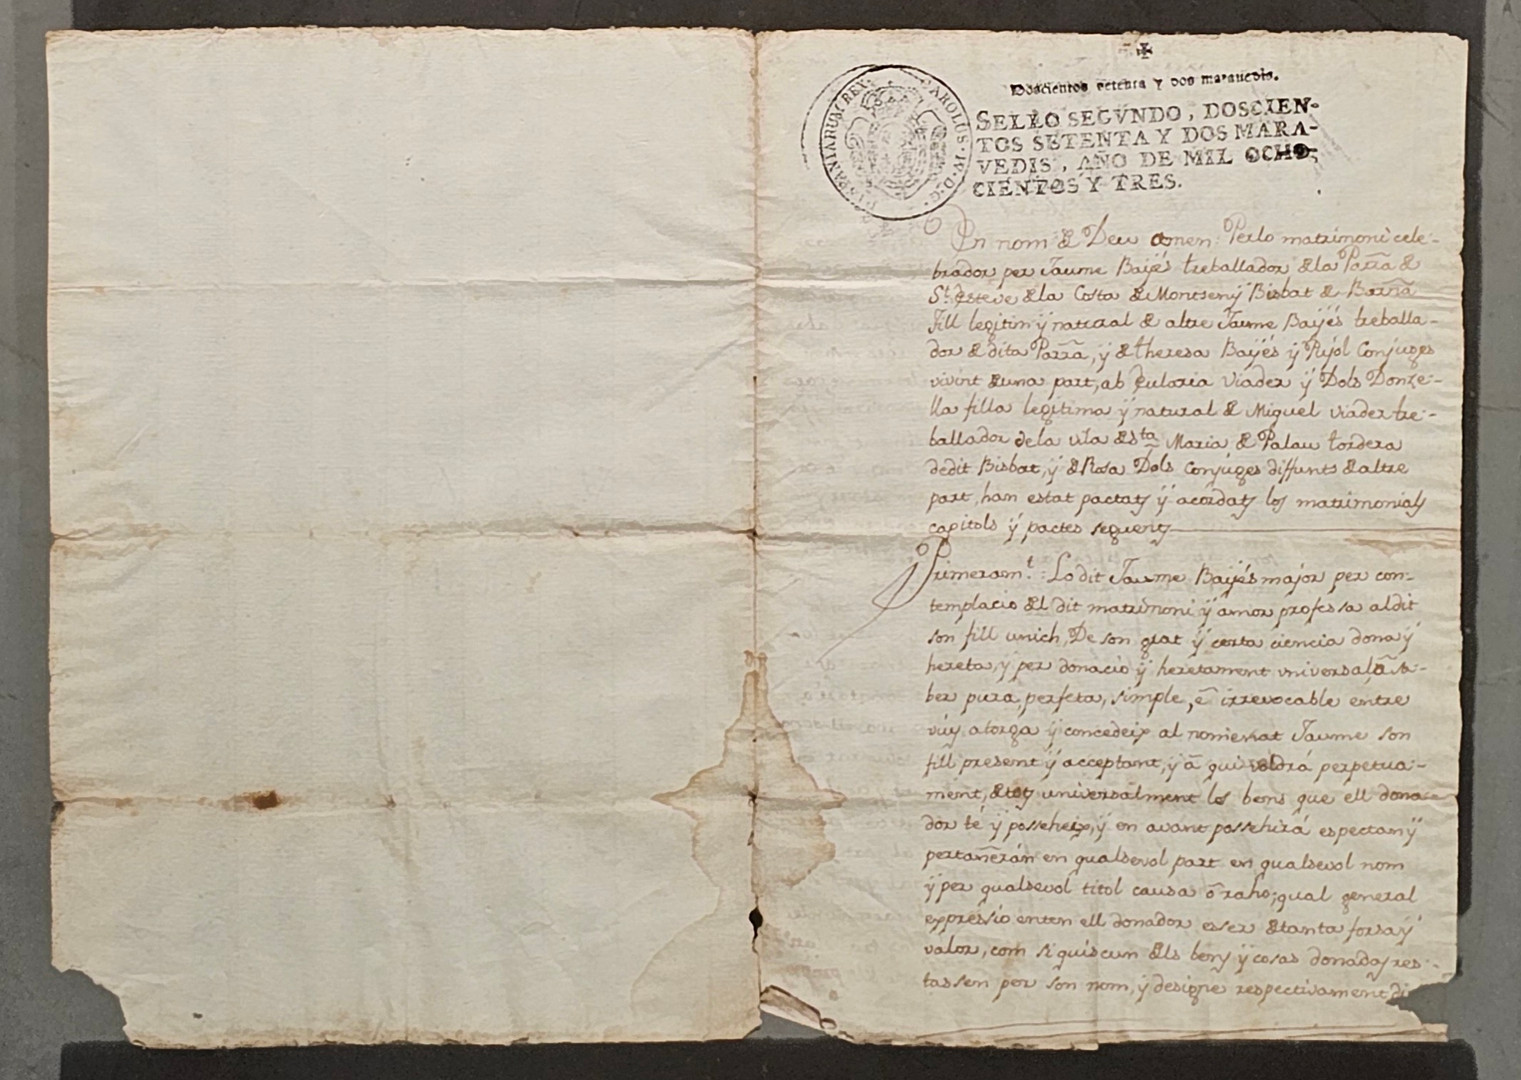 Doscientos setenta y dos marauedis.
HISPANIARUM REX. CAROLUS. IV. D. G.
SELLO SEGVNDO, DOSCIEN-
TOS SETENTA Y DOS MARA-
VEDIS, AÑO DE MIL OCHO-
CIENTOS Y TRES.
En nom de Deu Amen. Perlo matrimoni cele-
brador per Jaume Baÿés treballador de la Parra. de
St. Esteve de la Costa de Montsenÿ Bisbat de Barna.
fill legitim ÿ natural de altre Jaume Baÿés treballa-
dor de dita Parra., ÿ de theresa Baÿés ÿ Pujol Conjuges
vivint de una part, ab Eularia Viader ÿ Dols Donze-
lla filla legitima ÿ natural de Miquel Viader tre-
ballador dela vila de Sta. Maria de Palau tordera
dedit Bisbat, ÿ de Rosa Dols Conjuges diffunts de altre
part, han estat pactats ÿ acordats los matrimonials
capitols ÿ pactes seguents
Primeramt.: Lo dit Jaume Baÿés major per con-
templacio del dit matrimoni ÿ amor professa aldit
son fill unich, De son grat ÿ certa ciencia dona ÿ
hereta, ÿ per donació ÿ heretament universal, á sa-
ber pura, perfeta, simple, é irrevocable entre
viús atorga ÿ concedeix al nomenat Jaume son
fill present ÿ acceptant, ÿ á qui voldrá perpetua-
ment, de tots universalment los bens que ell dona-
dor té ÿ posseheix, ÿ en avant possehirá espectan ÿ
pertañerán en qualsevol part en qualsevol nom
ÿ per qualsevol titol causa ó raho; qual general
expréssio enten ell donador esser de tanta forsa ÿ
valor, com si quiscun dels bens ÿ cosas donadas res-
tassen per son nom, ÿ designe respectivament di